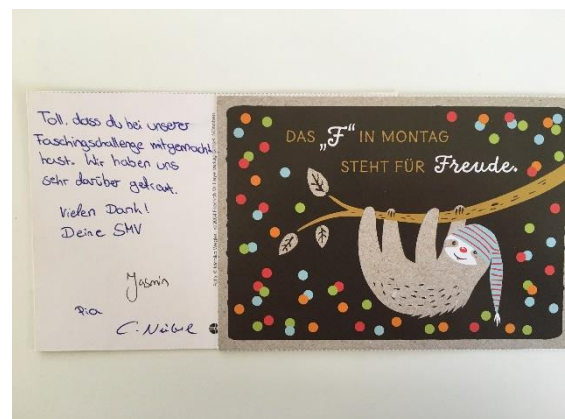 Toll, dass du bei unserer
Faschingschallenge mitgemacht
hast. Wir haben uns
sehr darüber gefreut.
Vielen Dank!
Deine SMV
Jasmin
Pia
DAS „F“ IN MONTAG
STEHT FÜR Freude.